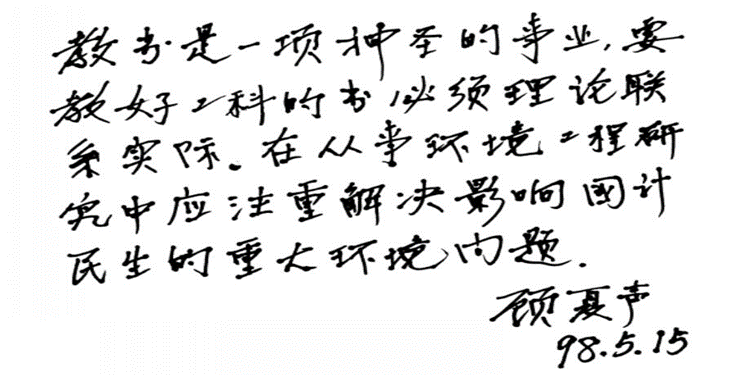 教书是一项神圣的事业,要
教好工科的书必须理论联
系实际。在从事环境工程研
究中应注重解决影响国计
民生的重大环境问题.
顾夏声
98.5.15